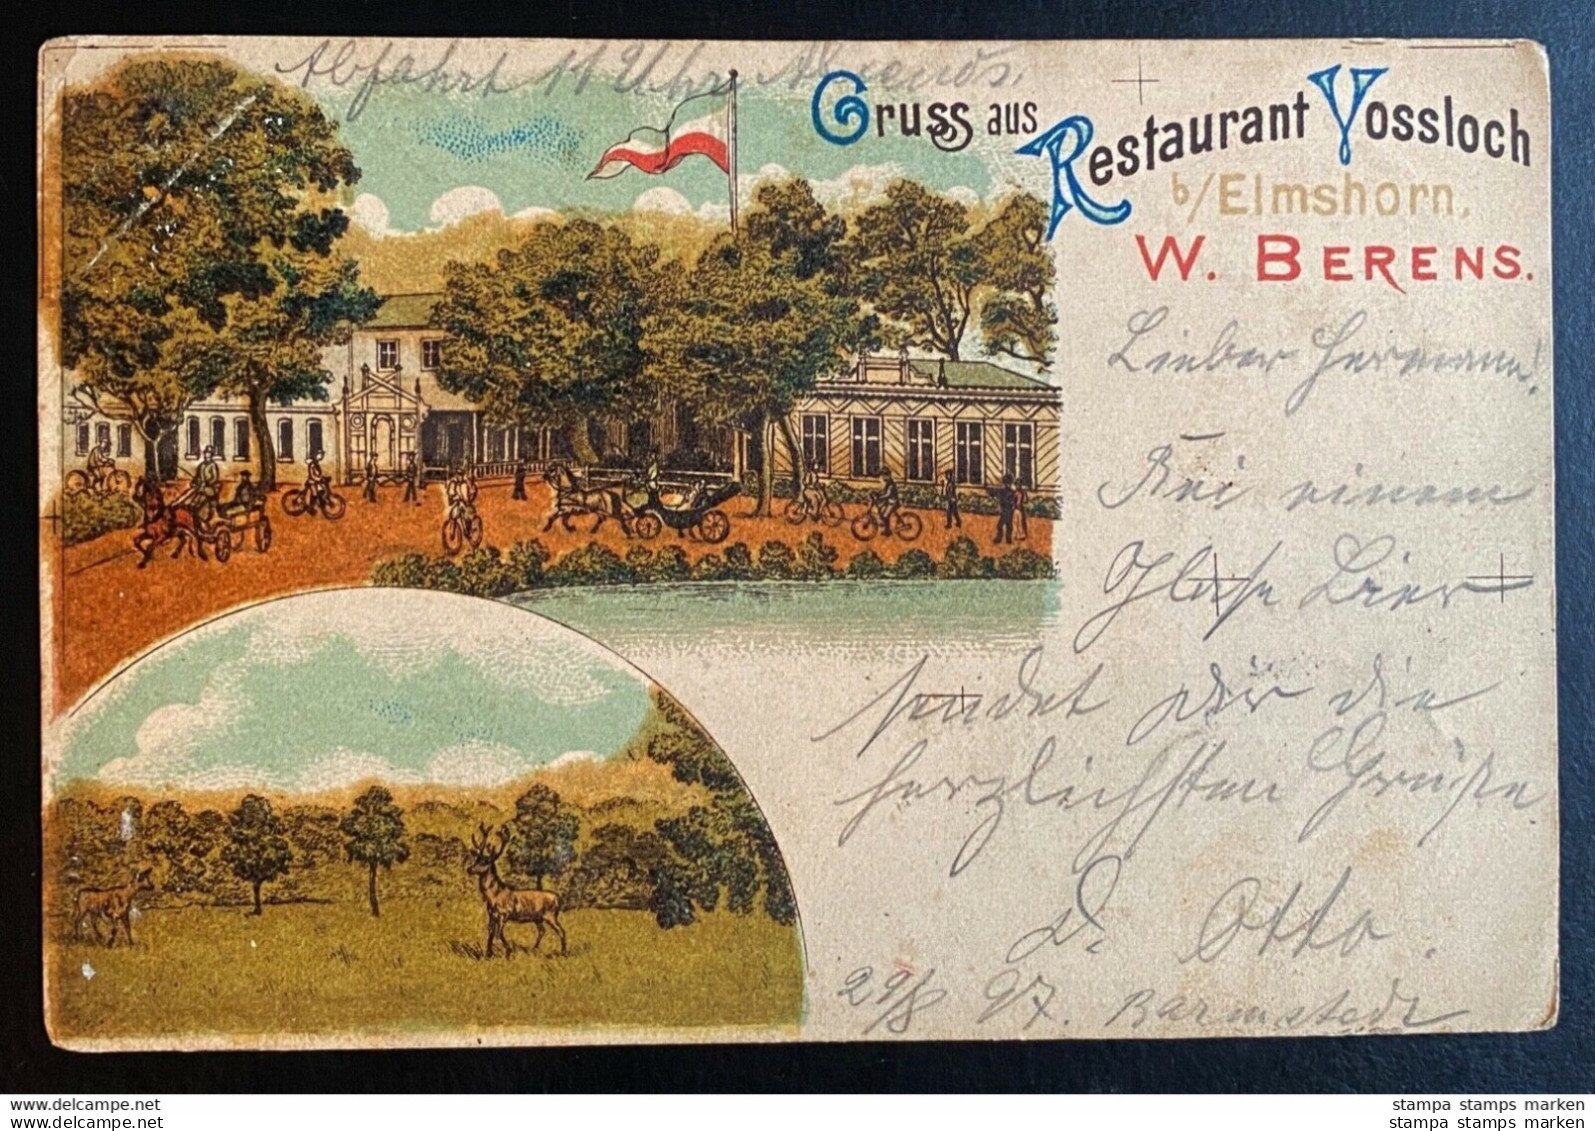 Abfahrt 11 Uhr Abends.
Gruss aus
Restaurant Vossloch
b/Elmshorn.
W. BERENS.
Lieber Hermann!
Bei einem
Glase Bier
sendet dir die
herzlichsten Grüße
D. Otto.
29/8 97. Barmstedt
delcampe.net
delcampe.net
stampa stamps marken
stampa stamps marken